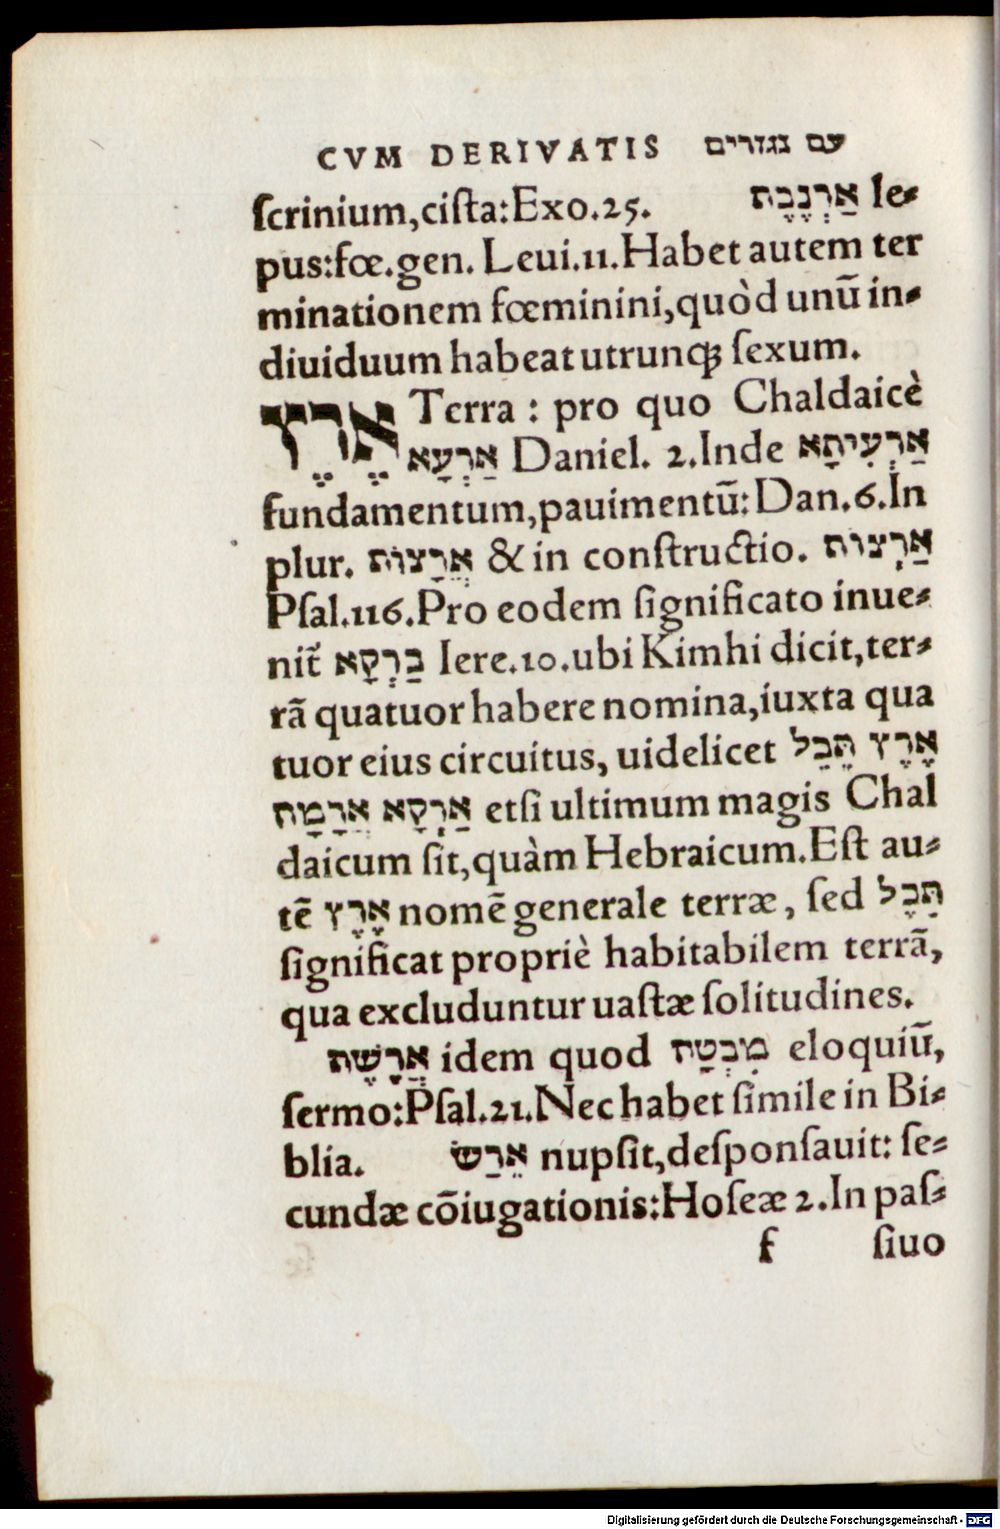 CVM DERIVATIS עם נגזרים
ſcrinium,ciſta:Exo.25. אַרְנֶבֶת le⸗
pus:fœ.gen. Leui.11.Habet autem ter
minationem fœminini,quòd unũ in⸗
diuiduum habeat utrunqꝫ ſexum.
אֶרֶץ Terra : pro quo Chaldaicè
אַרְעָא Daniel. 2.Inde אַרְעִיתָא
fundamentum,pauimentũ:Dan.6.In
plur. אֲרָצוֹת & in conſtructio. אַרְצוֹת
Pſal.116.Pro eodem ſignificato inue⸗
nit᷑ בַרְקָא Iere.10.ubi Kimhi dicit,ter⸗
rã quatuor habere nomina,iuxta qua
tuor eius circuitus, uidelicet אֶרֶץ תֵּבֵל
אֲרָמָת אַרְקָא etſi ultimum magis Chal
daicum ſit,quàm Hebraicum.Eſt au⸗
tẽ אֶרֶץ nomẽ generale terræ, ſed תֵּבֶל
ſignificat propriè habitabilem terrã,
qua excluduntur uaſtæ ſolitudines.
אֲרָשֶׁת idem quod מִבְטָת eloquiũ,
ſermo:Pſal.21.Nec habet ſimile in Bi⸗
blia. אֵרַשׂ nupſit,deſponſauit: ſe⸗
cundæ cõiugationis:Hoſeæ 2.In paſ⸗
f ſiuo
Digitalisierung gefördert durch die Deutsche Forschungsgemeinschaft - DFG